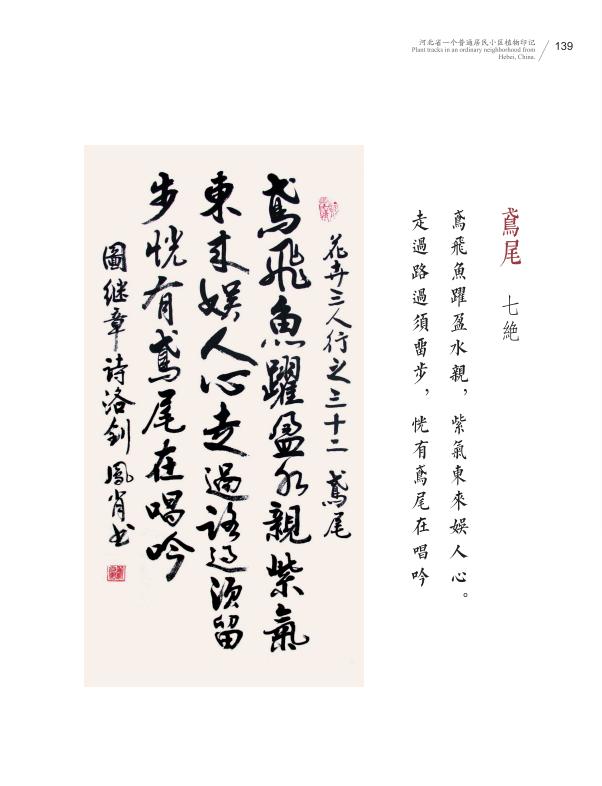 河北省一个普通居民小区植物印记
Plant tracks in an ordinary neighborhood from
Hebei, China.
139
鳶尾 七絶
鳶飛魚躍盈水親，紫氣東來娱人心。
走過路過須畱步，恍有鳶尾在唱吟
花卉三人行之三十二 鳶尾
鳶飛魚躍盈水親紫氣
東来娱人心走過路过須留
步恍有鳶尾在唱吟
圖继章 诗洛钊 鳳肖书